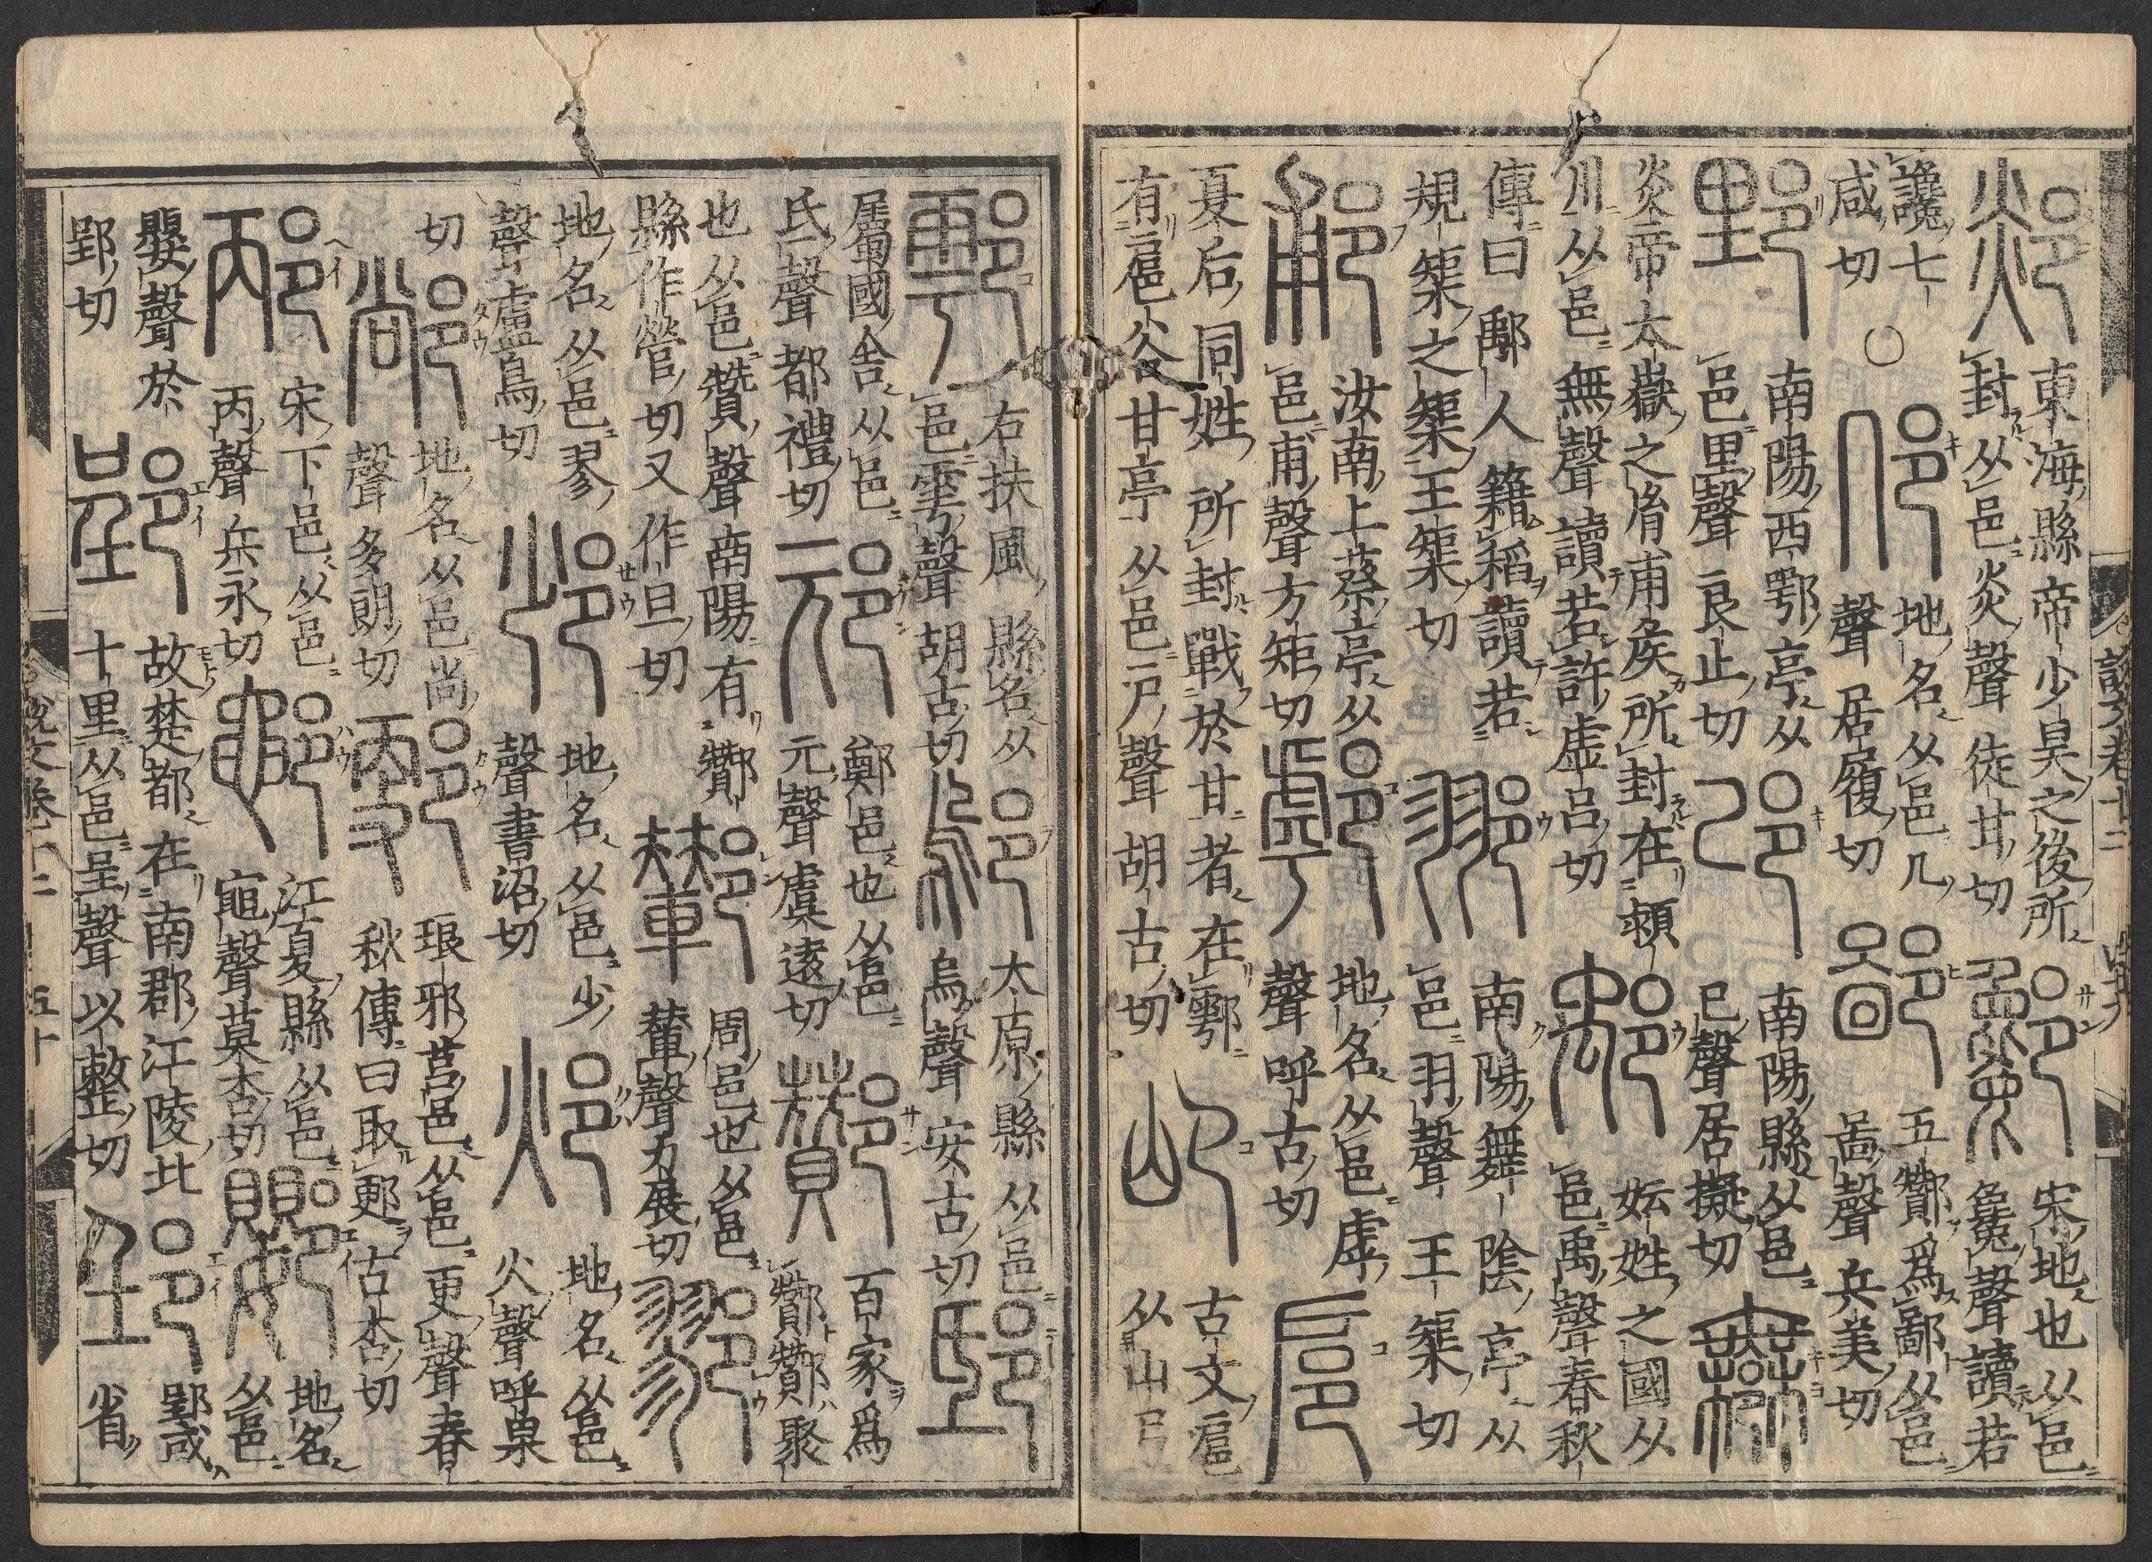 郯
東海縣帝少昊之後所
封从邑炎聲徒甘切
宋地也从邑
毚聲讀若
讒七
咸切
○
𨙸
地名从邑几
聲居履切
鄙
五酇爲鄙从邑
啚聲兵美切
南陽西鄂亭从
邑里聲良止切
南陽縣从邑
已聲居擬切
炎帝太嶽之胤甫侯所封在潁
川从邑無聲讀若許虛呂切
鄅
妘姓之國从
邑禹聲春秋
傳曰鄅人籍稻讀若
規榘之榘王榘切
南陽舞陰亭从
邑羽聲王榘切
郙
汝南上蔡亭从
邑甫聲方矩切
地名从邑虖
聲呼古切
扈
夏后同姓所封戰於甘者在鄠
有扈谷甘亭从邑戶聲胡古切
古文扈
从山弓
鄠
右扶風縣名从
邑雩聲胡古切
鄔
太原縣从邑
烏聲安古切
邸
屬國舍从邑
氐聲都禮切
邧
鄭邑也从邑
元聲虞遠切
酇
百家爲
酇酇聚
也从邑贊聲南陽有酇
縣作管切又作旦切
周邑也从邑
輦聲力展切
鄝
地名从邑翏
聲盧鳥切
地名从邑少
聲書沼切
地名从邑
火聲呼果
切
地名从邑尚
聲多朗切
郠
琅邪莒邑从邑更聲春
秋傳曰取郠古杏切
邴
宋下邑从邑
丙聲兵永切
鄳
江夏縣从邑
黽聲莫杏切
地名
从邑
嬰聲於
郢切
郢
故楚都在南郡江陵北
十里从邑呈聲以整切
郢或
省
說文卷十二
五十